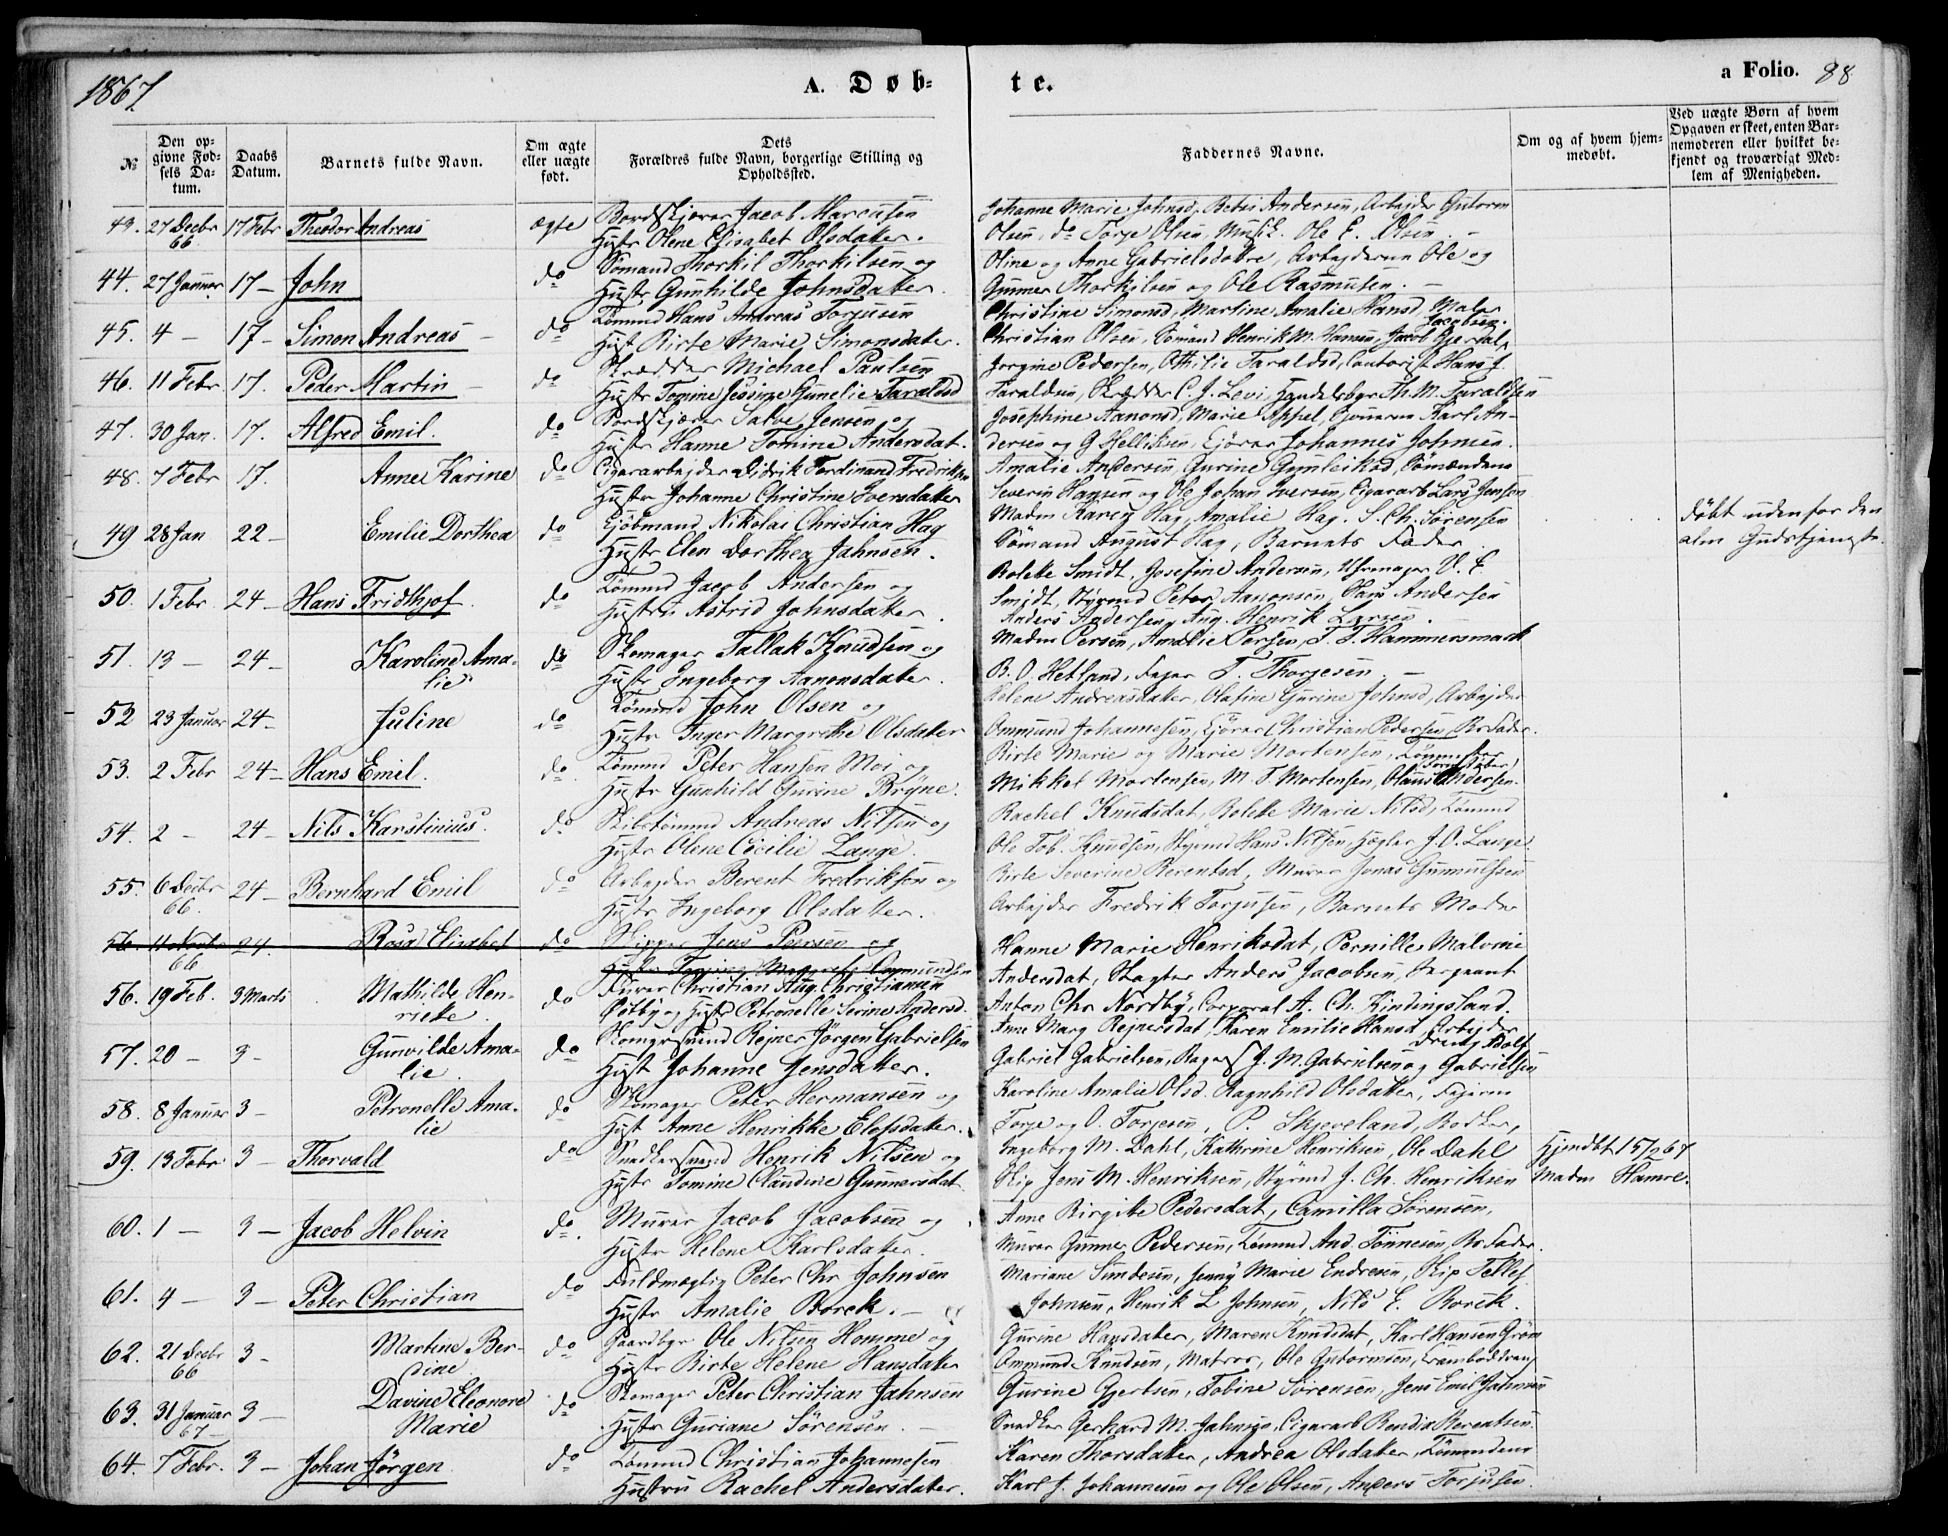 1867
A. Døb-
te.
a Folio. 88
№
Den op-
givne Fød-
sels Da-
tum.
Daabs
Datum.
Barnets fulde Navn.
Om ægte
eller uægte
født.
Dets
Forældres fulde Navn, borgerlige Stilling og
Opholdssted.
Faddernes Navne.
Om og af hvem hjem-
medøbt.
Ved uægte Børn af hvem
Opgaven er skeet, enten Bar-
nemoderen eller hvilket be-
kjendt og troværdigt Med-
lem af Menigheden.
43. 27 Decbr 66 17 Febr Theodor Andreas ægte Bordskjærer Jacob Marcusen
Hustr Olene Elisabet Olsdatter.
Johanne Marie Johnsd, Andersen, Arbejder Gutorm
Olsen, do Torje Olsen, Musik. Ole E. Olsen
44. 27 Januar 17 – John do Sømand Thorkil Thorkilsen og
Hustr Gunhilde Johnsdatter.
Oline og Anne Gabrielsdøtre, Arbejderne Ole og
Gunner Thorkilsen og Ole Rasmusen.
45. 4 – 17 – Simon Andreas do Tømmd Hans Andreas Torjusen
Hust Birte Marie Simonsdatter.
Christine Simonsd, Martine Amalie Hansd, Maler
Christian Olsen, Sømand Henrik M. Hansen, Jacob
Jacobsen
46. 11 Febr 17. Peder Martin do Skrædder Michael Paulsen
Hustr Tomine Jessine Gunelie Taraldsd
Jorgine Pedersen, Othilie Taraldsd, Contorist Hans J.
Taraldsen, Skrædder C. J. Levi, Handelsbgr Th. M. Taraldsen
47. 30 Jan. 17. Alfred Emil. do Bordskjærer Salve Jensen og
Hustr Hanne Tomine Andersdat.
Josephine Aanonsd, Marie Appel, Karl An-
dersen og G Helliksen, Johannes Johnsen.
48. 7 Febr 17. Anne Karine do Cigararbejder Didrik Ferdinand Fredriksen
Hustr Johanne Christine Iversdatter
Amalie Andersen, Gurine Sømændene
Severin Hansen og Ole Johan Iversen, Cigararb Lars Jensen
49 28 Jan 22 – Emilie Dorthea do Kjøbmand Nikolai Christian Hag
Hustr Elen Dorthea Jahnsen.
Madm Karen Hag, Amalie Hag. S. Ch. Sørensen
Sømand August Hag, Barnets Fader.
Døbt udenfor den
alm Gudstjeneste.
50. 1 Febr 24 – Hans Fridthjof do Tømmd Jacob Andersen og
Hustru Astrid Johnsdatter.
Bolette Smidt, Josefine Andersen, Uhrmager
Smidt, Styrmd Peter Aanonsen, Hans Andersen
Anders Andersen, Aug. Henrik Larsen.
51. 13 – 24 – Karoline Ama-
lie
do Skomager Tallak Knudsen og
Hustr Ingeborg Aanonsdatter.
Madm Persen, Amalie Persen, T. T. Hammersmark
B. O. Hetland, T. Thorjesen
52 23 Januar 24 – Juline do Tømmd John Olsen og
Hustr Inger Margrethe Olsdatter
Helene Andreasdatter, Olafine Gurine Johnsd, Arbejder
Ommund Johannesen, Christian Pedersen, Br Fader.
53. 2 Febr 24 – Hans Emil. do Tømmd Peter Hansen Moi og
Hustr Gunhild Gurine Bryne.
Birte Marie og Marie Mortensen,
Mikkel Mortensen, M. T. Mortensen, Andersen.
54. 2 – 24 – Nils Karstinius. do Skibstømmd Andreas Nilsen og
Hustr Oline Cecilie Lange.
Rachel Knudsdat, Bolette Marie Nilsd, Tømmd
Ole Tob. Knudsen, Styrmd Hans Nilsen, J. O. Lange
55. 6 Decbr 66. 24 – Bernhard Emil do Arbejder Berent Fredriksen og
Hustr Ingeborg Olsdatter.
Birte Severine Berentsd, Murer Jonas Gunnulfsen
Arbejder Fredrik Torjusen, Barnets Moder
56. 11 Novbr 66 24. Rosa Elisabet do Skipper Jens Persen og
56. 19 Feb. 3 Marts Mathilde Hen-
riette.
do Furer Christian Aug. Christiansen
Østby og Hustr Petronelle Serine Andersd.
Hanne Marie Henriksdat, Pernille Malvine
Andersdat, Slagter Anders Jacobsen, Sergeant
Anton Chr Nordby, Corporal A. Ch. Kindingsland.
57. 20 – 3 – Gunvilde Ama-
lie.
do Rejner Jørgen Gabrielsen
Hust Johanne Jensdatter.
Anne Marg Rejnersdat, Karen Emilie Hansd, Arbejder
Gabriel Gabrielsen, J. M. Gabrielsen og Gabrielsen
58. 8 Januar 3 – Petronelle Ama-
lie
do Skomager Peter Hermansen og
Hust Anne Henrikke Elefsdatter.
Karoline Amalie Olsd. Ragnhild Olsdatter,
Torje og O. Torjesen, P. Skjeveland, Bødker,
59. 13 Febr 3 – Thorvald do Snedkersvend Henrik Nilsen og
Hustr Tomine Claudine Gunnersdat
Ingeborg M. Dahl, Kathrine Henriksen, Ole Dahl
Skip Jens M. Henriksen, Styrmd J. Ch. Henriksen
Hjmdbt 15/2 67
Madm Hamre.
60. 1 – 3 – Jacob Helvin do. Murer Jacob Jacobsen og
Hustr Helene Karlsdatter.
Anne Birgite Pedersdat, Camilla Sørensen,
Murer Gunner Pedersen, Tømmd And. Tønnesen, Br. Fader.
61. 4 – 3 – Peter Christian do Fuldmægtig Peter Chr Johnsen
Hustr Amalie Borck. –
Mariane Simdesen, Jenny Marie Endresen, Skip Tellef
Johnsen, Henrik L Johnsen, Nils E. Borck.
62. 21 Decbr 66 3 – Martine Ber-
tine
do Gaardbgr Ole Nilsen Homme og
Hustr Birte Helene Hansdatter
Gurine Hansdatter, Maren Knudsdat, Karl Hansen Grøm
Ommund Knudsen, Matros, Ole Gutormsen,
63. 31 Januar 67 3 – Davine Eleonore
Marie
do Skomager Peter Christian Jahnsen
Hustr Guriane Sørensen. –
Gurine Gjertsen, Tobine Sørensen, Jens Emil Jahnsen
Snedker Gerhard M. Jahnsen, Cigararb Bendix Berentsen
64. 7 Febr. 3 – Johan Jørgen do Tømmd Christian Johannesen
Hustru Rachel Andersdatter.
Karen Thorsdatter, Andrea Olsdatter, Tømmdene
Karl J. Johannesen og Ole Olsen, Anders Torjusen.